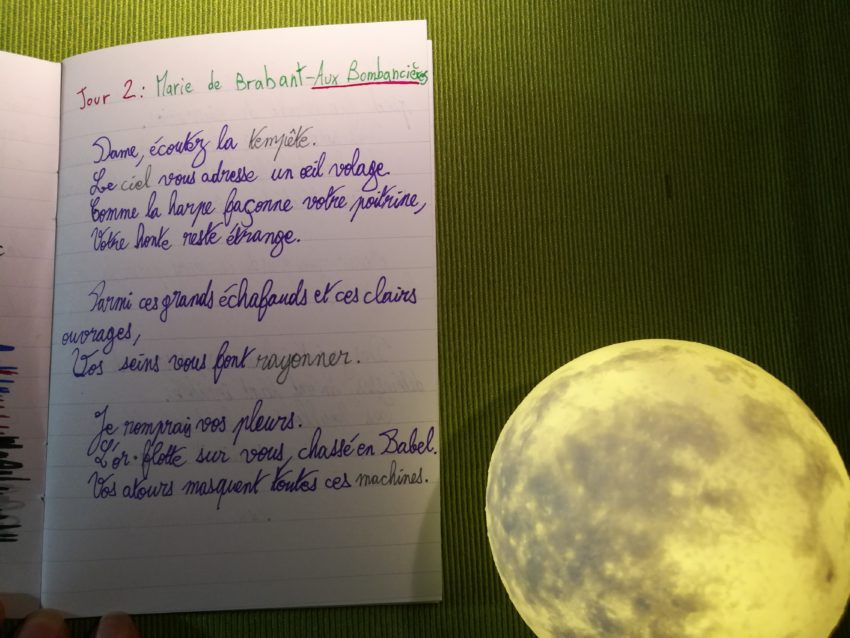 Jour 2: Marie de Brabant-Aux Bombancières
Dame, écoutez la tempête.
Le ciel vous adresse un œil volage.
Comme la harpe façonne votre poitrine,
Votre honte reste étrange.
Parmi ces grands échafauds et ces clairs
ouvrages,
Vos seins vous font rayonner.
Je romprais vos pleurs.
L'or flotte sur vous, chassé en Babel.
Vos atours masquent toutes ces machines.